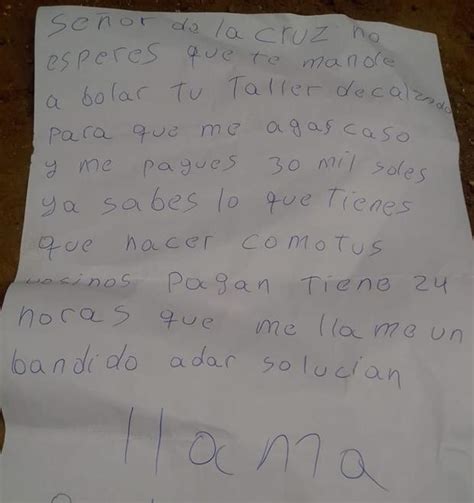 señor de la cruz no
esperes que te mande
a bolar tu Taller de calzado
para que me agas caso
y me pagues 30 mil soles
ya sabes lo que tienes
que hacer como tus
vecinos pagan tiene 24
horas que me llame un
bandido adar solucian
llama